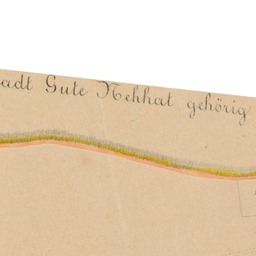 adt Gute Nehhat gehörig